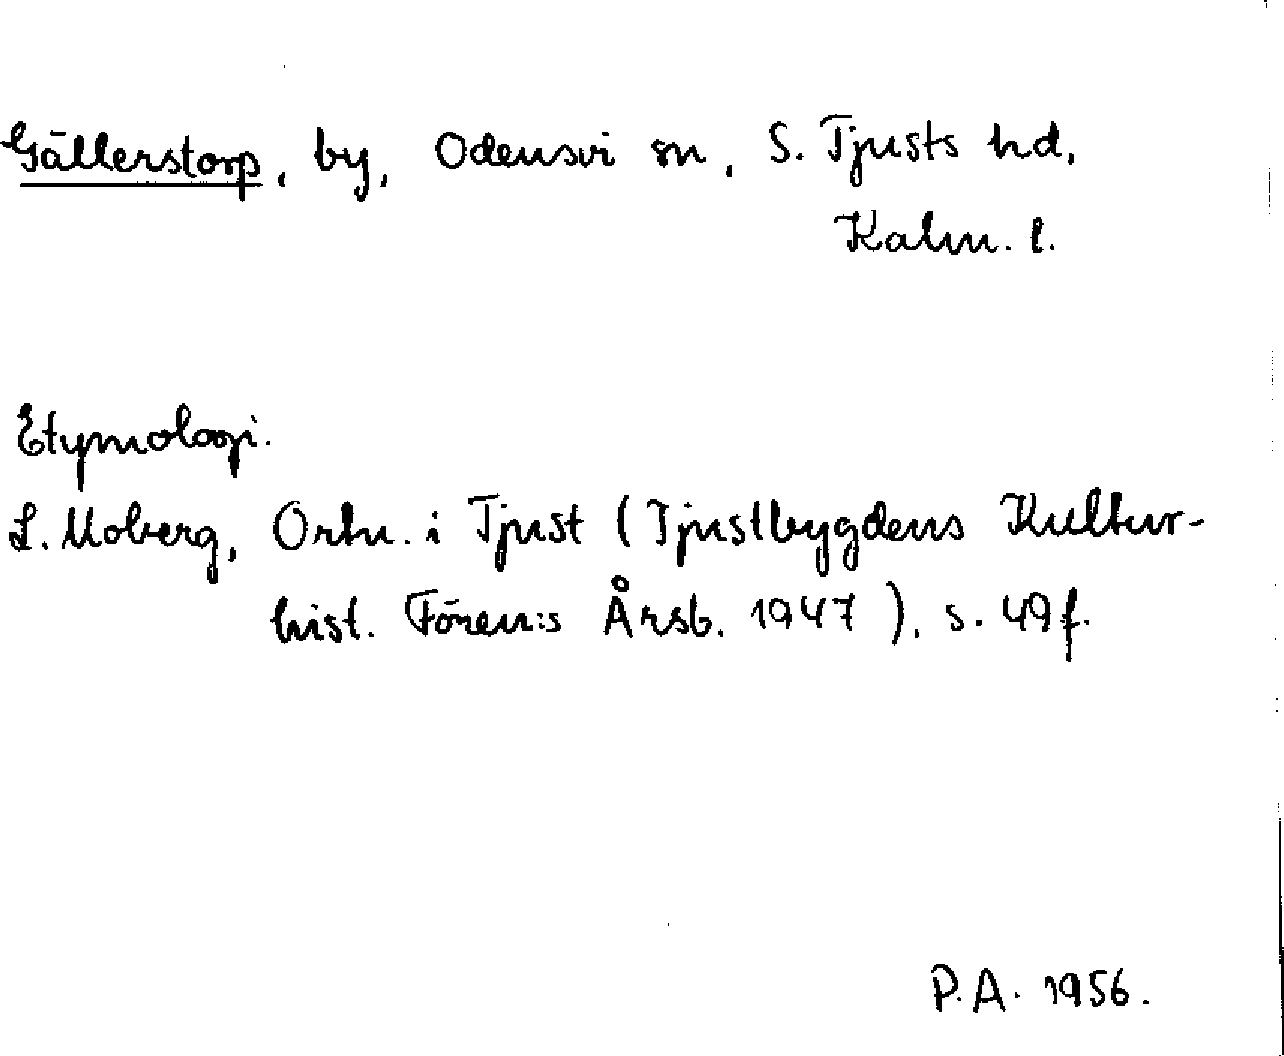 Gällerstorp, by, Odensvi sn, S. Tjusts hd,
Kalm. l.
Etymologi.
L. Moberg, Ortn. i Tjust (Tjustbygdens Kultur-
hist. Fören:s Årsb. 1947), s. 49f.
P.A. 1956.